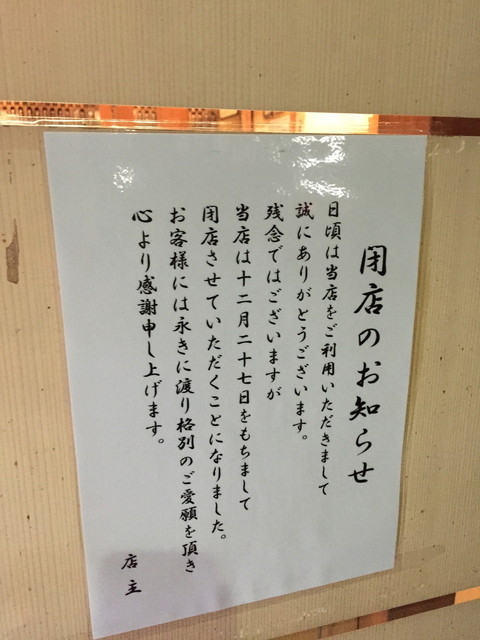 閉店のお知らせ
日頃は当店をご利用いただきまして
誠にありがとうございます。
残念ではございますが
当店は十二月二十七日をもちまして
閉店させていただくことになりました。
お客様には永きに渡り格別のご愛願を頂き
心より感謝申し上げます。
店主